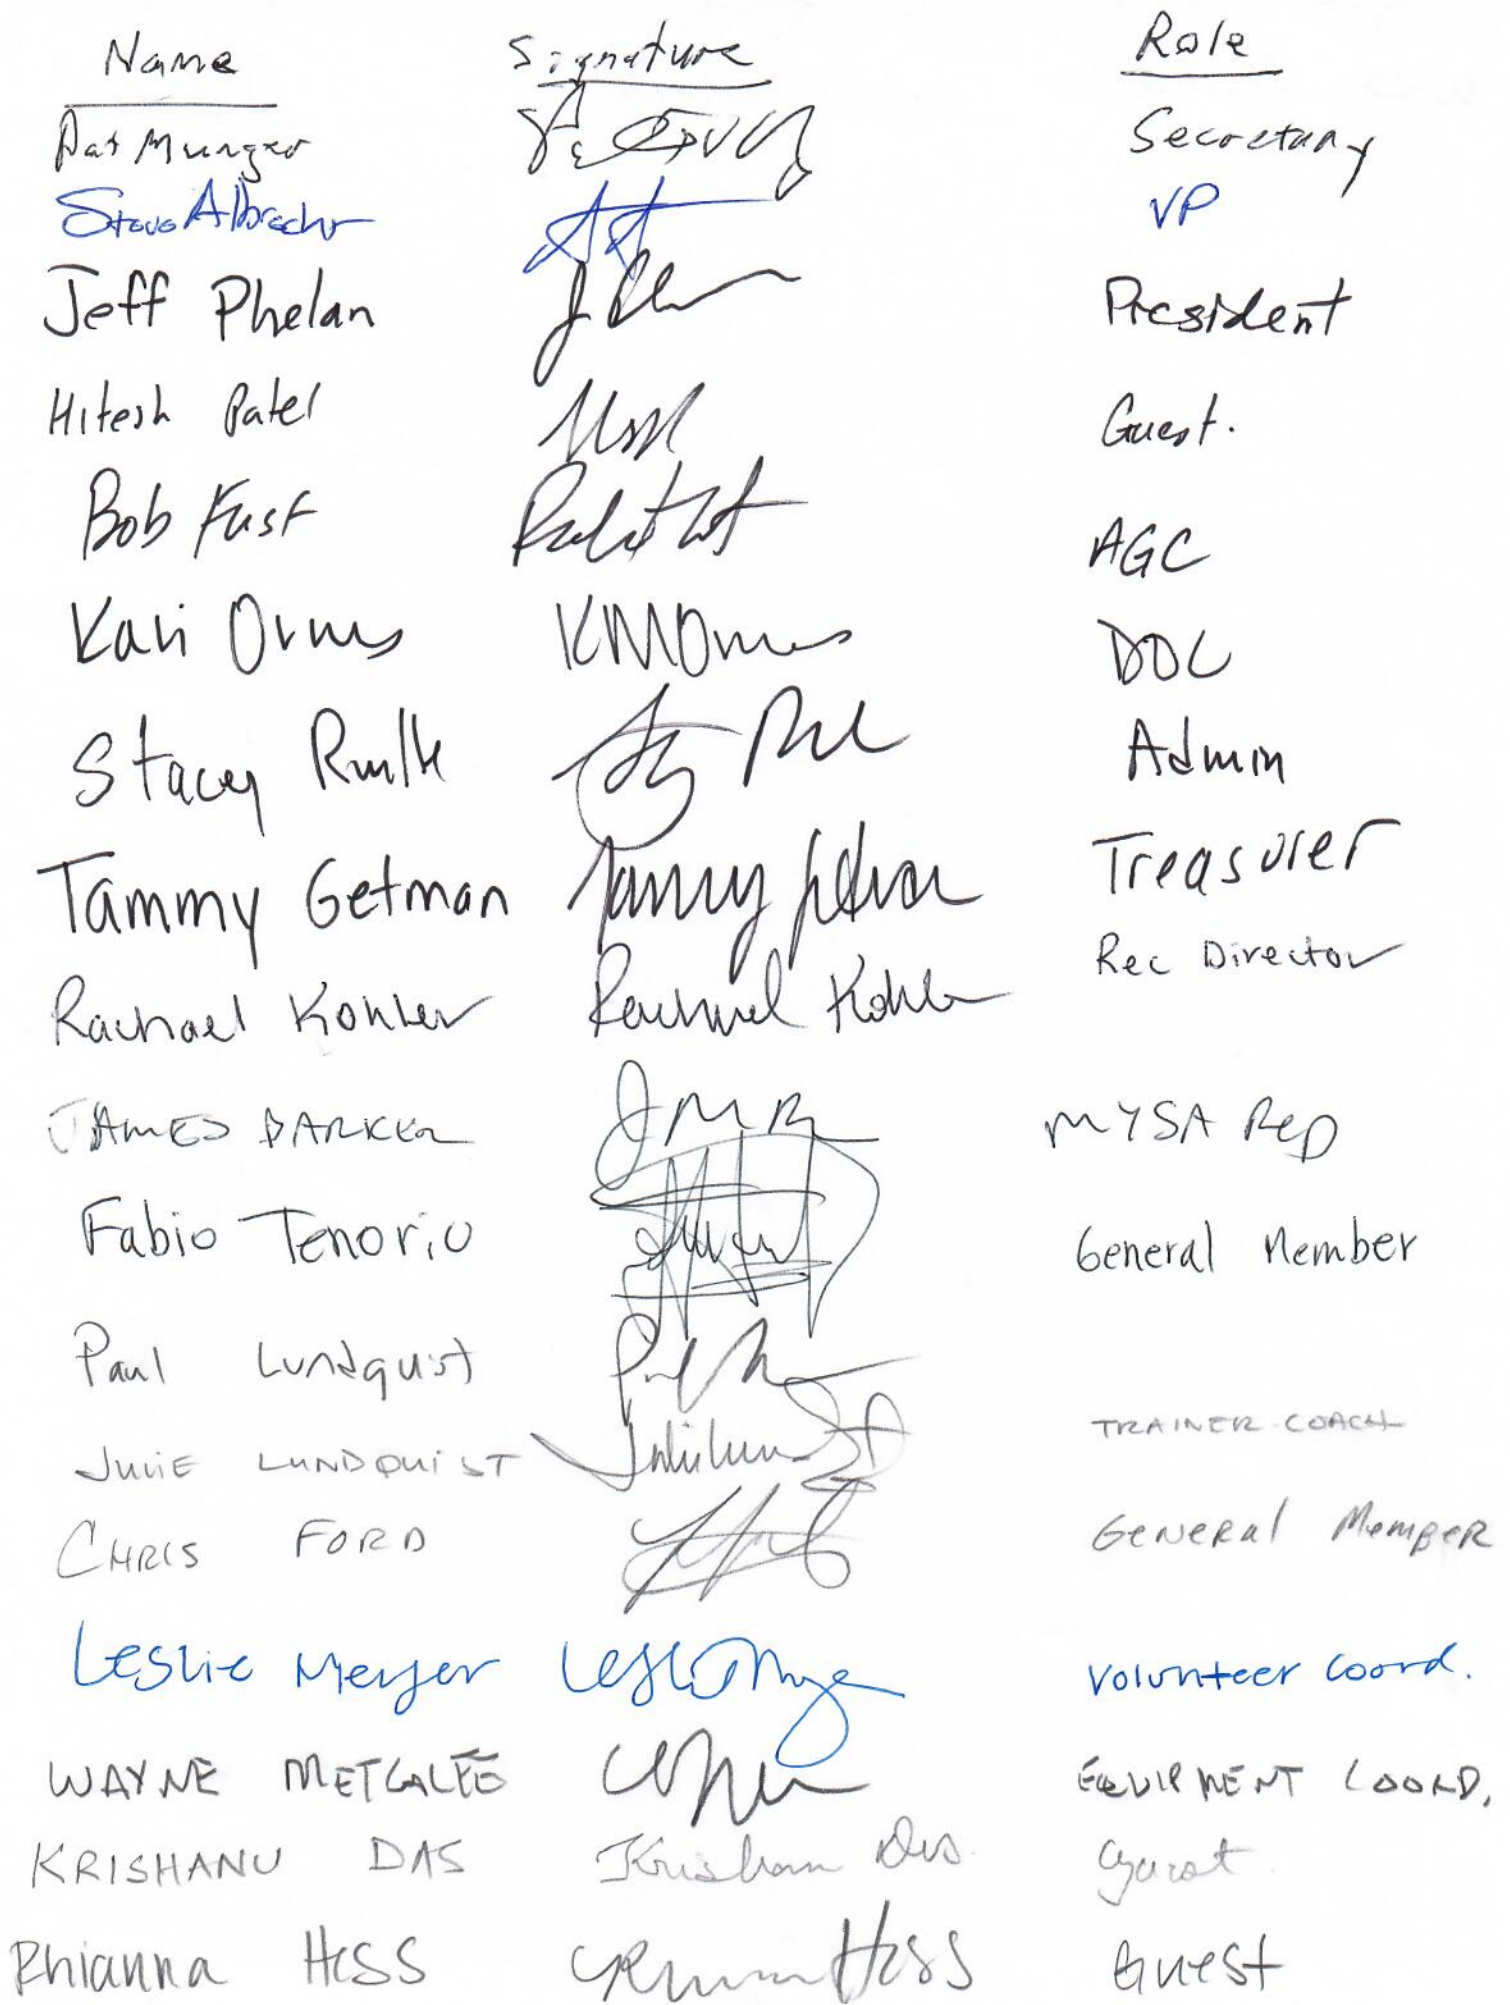 Name Signature Role
Pat Munger Secretary
Steve Albrecht VP
Jeff Phelan President
Hitesh Patel Guest.
Bob Fust AGC
Kari Ornes KMOrnes DOC
Stacey Admin
Tammy Getman Tammy Getman Treasurer
Rachael Kohler Rachael Kohler Rec Director
JAMES BARKER JMB MYSA Rep
Fabio Tenorio General Member
Paul Lundquist
JULIE LUNDQUIST TRAINER COACH
CHRIS FORD GENERAL MEMBER
Leslie Meyer Leslie Meyer Volunteer Coord.
WAYNE METCALFE EQUIPMENT COORD.
KRISHANU DAS Krishanu Das. Guest.
Rhianna Hess Rhianna Hess Guest